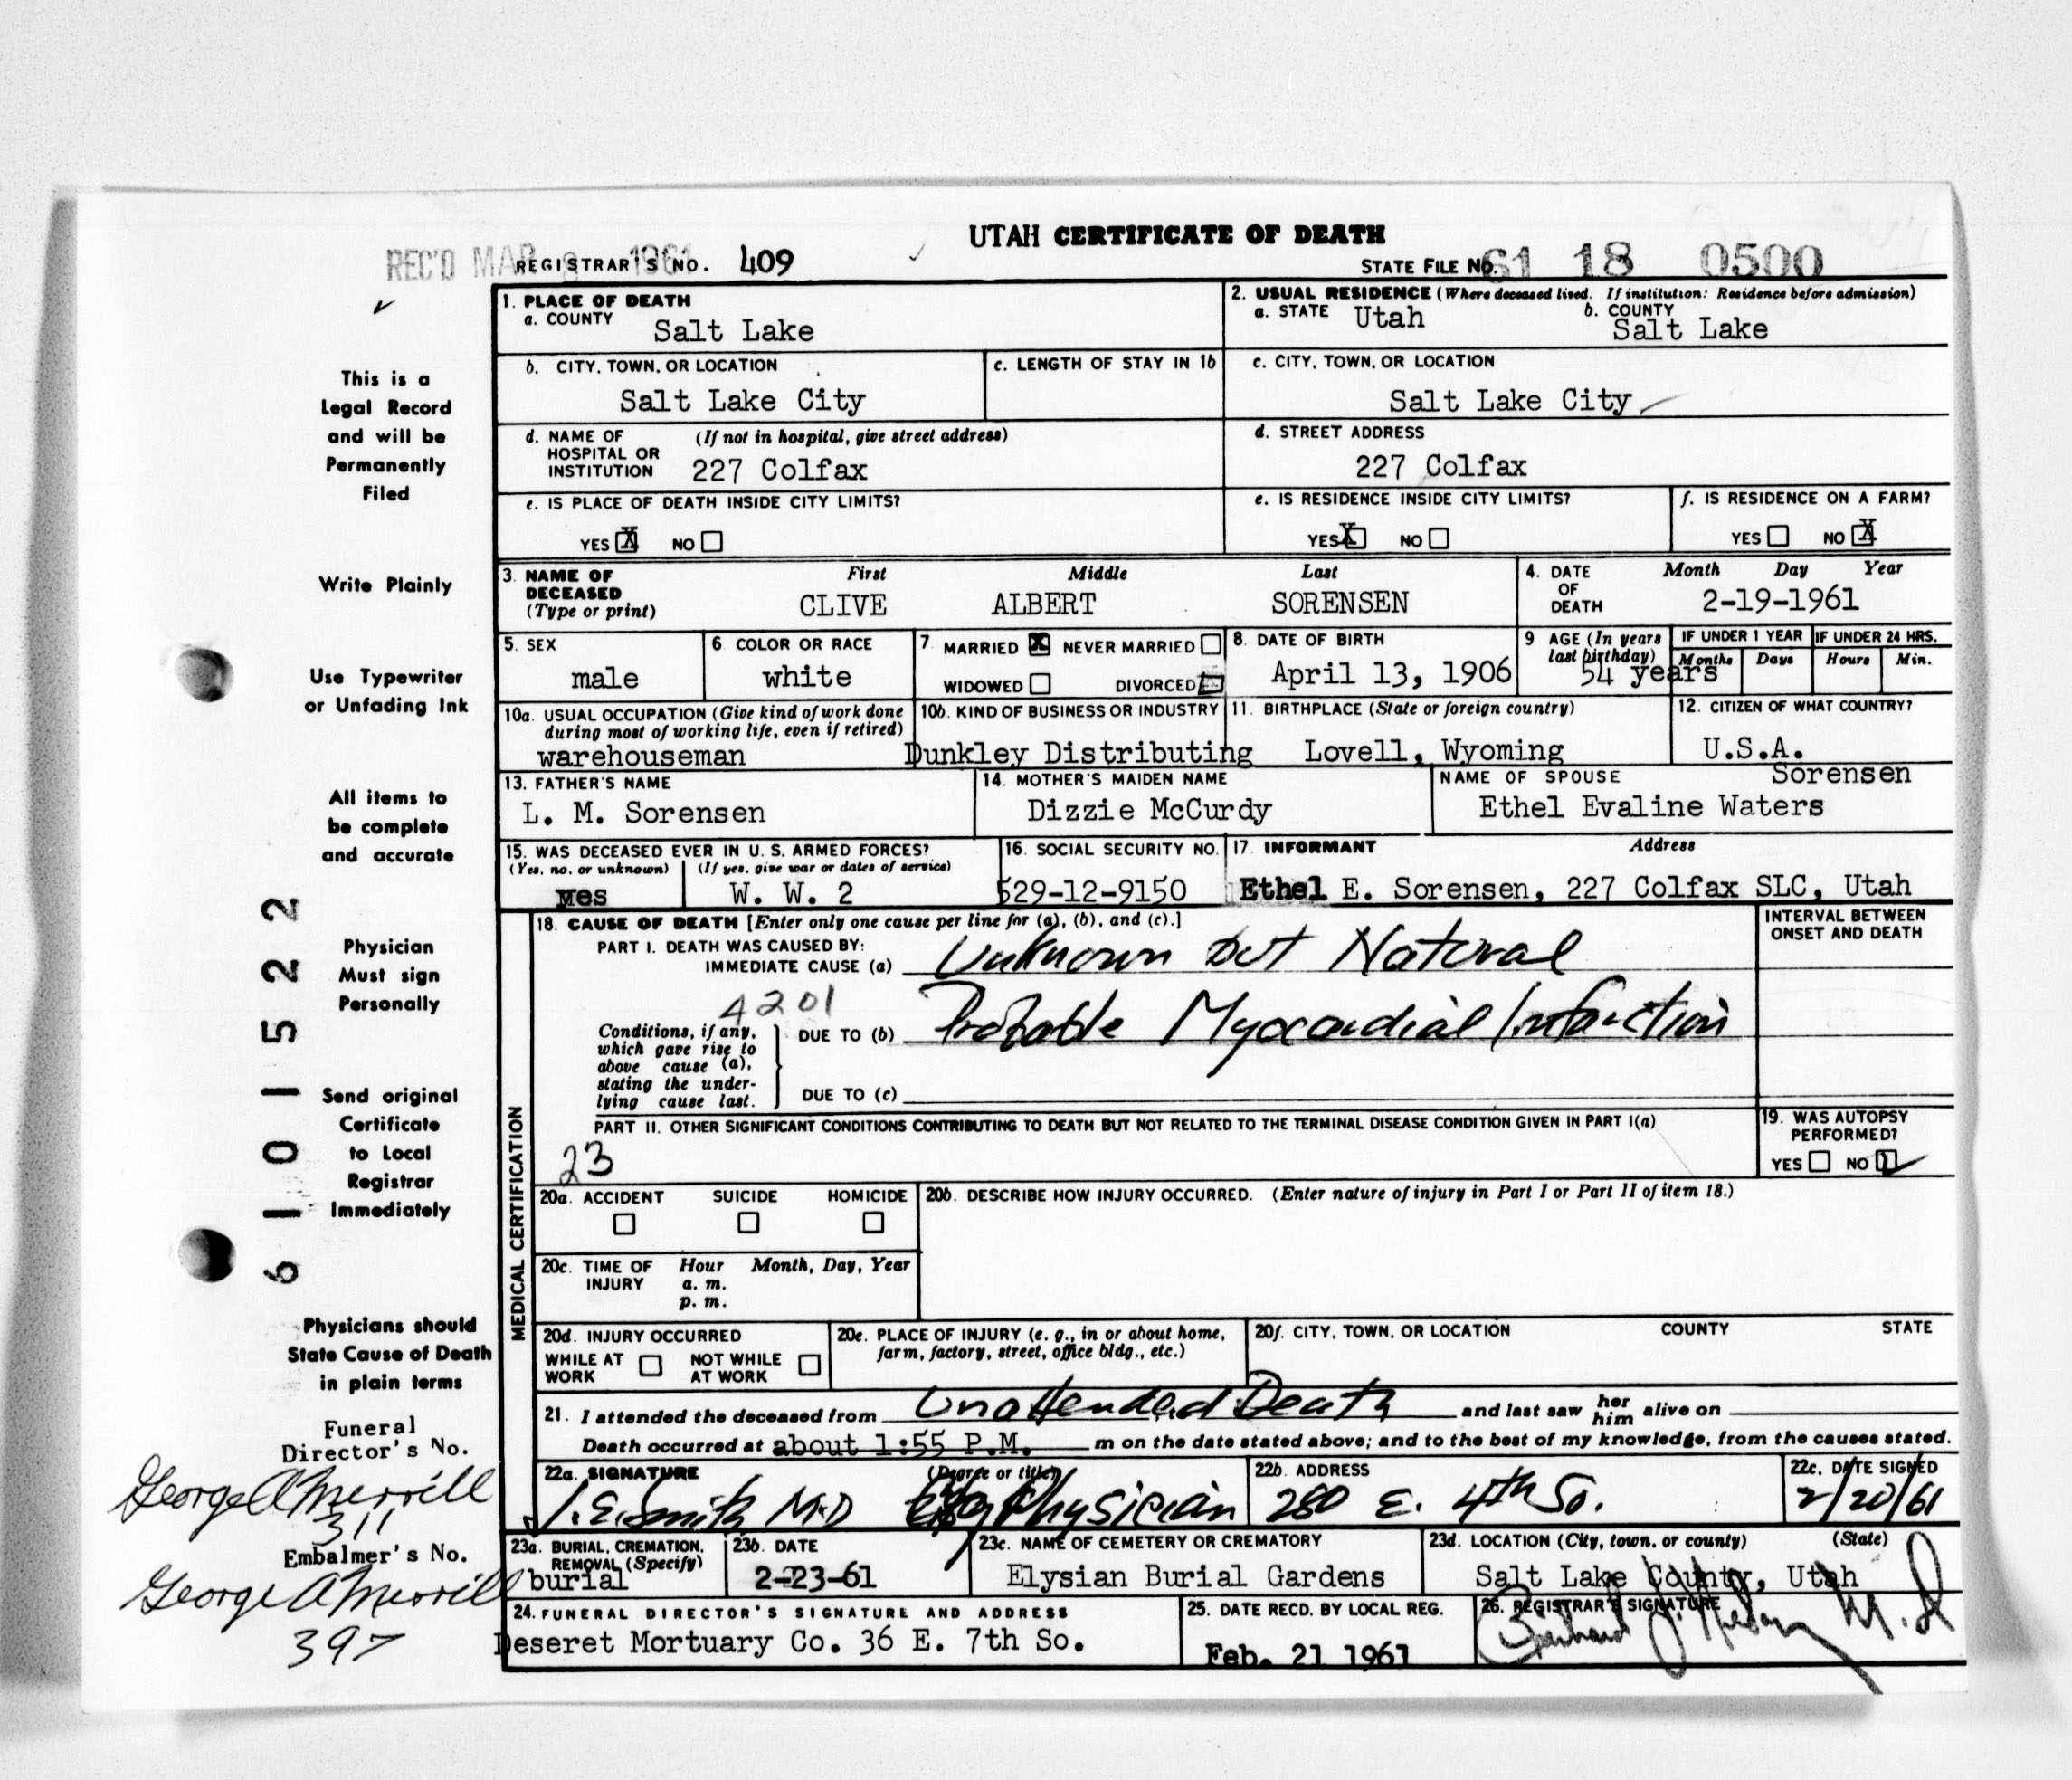 UTAH CERTIFICATE OF DEATH
REC'D MAR 1961 REGISTRAR'S NO. 409
STATE FILE NO. 61 18 0500
This is a
Legal Record
and will be
Permanently
Filed
Write Plainly
Use Typewriter
or Unfading Ink
All items to
be complete
and accurate
Physician
Must sign
Personally
Send original
Certificate
to Local
Registrar
Immediately
Physicians should
State Cause of Death
in plain terms
Funeral
Director's No.
George A Merrill
311
Embalmer's No.
George A Merrill
397
61015522
1. PLACE OF DEATH
a. COUNTY Salt Lake
2. USUAL RESIDENCE (Where deceased lived. If institution: Residence before admission)
a. STATE Utah b. COUNTY Salt Lake
b. CITY, TOWN, OR LOCATION Salt Lake City
c. LENGTH OF STAY IN 1b
c. CITY, TOWN, OR LOCATION Salt Lake City
d. NAME OF HOSPITAL OR INSTITUTION (If not in hospital, give street address) 227 Colfax
d. STREET ADDRESS 227 Colfax
e. IS PLACE OF DEATH INSIDE CITY LIMITS?
YES X NO
e. IS RESIDENCE INSIDE CITY LIMITS?
YES X NO
f. IS RESIDENCE ON A FARM?
YES NO X
3. NAME OF DECEASED (Type or print)
First Middle Last
CLIVE ALBERT SORENSEN
4. DATE OF DEATH Month Day Year
2-19-1961
5. SEX male
6. COLOR OR RACE white
7. MARRIED X NEVER MARRIED
WIDOWED DIVORCED
8. DATE OF BIRTH April 13, 1906
9 AGE (In years last birthday) 54 years
IF UNDER 1 YEAR IF UNDER 24 HRS.
Months Days Hours Min.
10a. USUAL OCCUPATION (Give kind of work done during most of working life, even if retired)
warehouseman
10b. KIND OF BUSINESS OR INDUSTRY
Dunkley Distributing
11. BIRTHPLACE (State or foreign country)
Lovell, Wyoming
12. CITIZEN OF WHAT COUNTRY?
U.S.A.
13. FATHER'S NAME
L. M. Sorensen
14. MOTHER'S MAIDEN NAME
Dizzie McCurdy
NAME OF SPOUSE Sorensen
Ethel Evaline Waters
15. WAS DECEASED EVER IN U. S. ARMED FORCES?
(Yes, no, or unknown) (If yes, give war or dates of service)
yes W. W. 2
16. SOCIAL SECURITY NO.
529-12-9150
17. INFORMANT Address
Ethel E. Sorensen, 227 Colfax SLC, Utah
MEDICAL CERTIFICATION
18. CAUSE OF DEATH [Enter only one cause per line for (a), (b), and (c).]
INTERVAL BETWEEN ONSET AND DEATH
PART I. DEATH WAS CAUSED BY:
IMMEDIATE CAUSE (a) Unknown but Natural
4201
Conditions, if any, which gave rise to above cause (a), stating the underlying cause last.
DUE TO (b) Probable Myocardial Infarction
DUE TO (c)
PART II. OTHER SIGNIFICANT CONDITIONS CONTRIBUTING TO DEATH BUT NOT RELATED TO THE TERMINAL DISEASE CONDITION GIVEN IN PART I(a)
23
19. WAS AUTOPSY PERFORMED?
YES NO
20a. ACCIDENT SUICIDE HOMICIDE
20b. DESCRIBE HOW INJURY OCCURRED. (Enter nature of injury in Part I or Part II of item 18.)
20c. TIME OF INJURY Hour Month, Day, Year
a. m.
p. m.
20d. INJURY OCCURRED
WHILE AT WORK NOT WHILE AT WORK
20e. PLACE OF INJURY (e. g., in or about home, farm, factory, street, office bldg., etc.)
20f. CITY, TOWN, OR LOCATION COUNTY STATE
21. I attended the deceased from Unattended Death and last saw her him alive on
Death occurred at about 1:55 P.M. m on the date stated above; and to the best of my knowledge, from the causes stated.
22a. SIGNATURE (Degree or title)
J. E. Smith M.D City Physician
22b. ADDRESS
280 E. 4th So.
22c. DATE SIGNED
2/20/61
23a. BURIAL, CREMATION, REMOVAL (Specify)
burial
23b. DATE
2-23-61
23c. NAME OF CEMETERY OR CREMATORY
Elysian Burial Gardens
23d. LOCATION (City, town, or county) (State)
Salt Lake County, Utah
24. FUNERAL DIRECTOR'S SIGNATURE AND ADDRESS
Deseret Mortuary Co. 36 E. 7th So.
25. DATE RECD. BY LOCAL REG.
Feb. 21 1961
26. REGISTRAR'S SIGNATURE
M.D